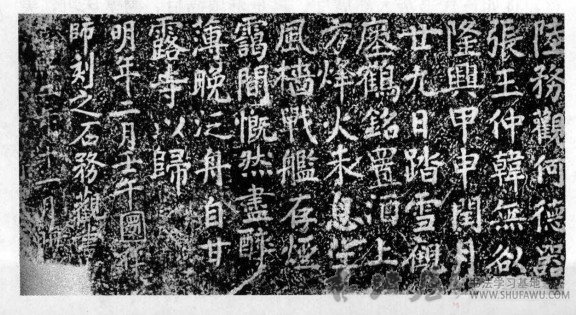 陸務觀何德器
張王仲韓無咎
隆興甲申閏月
廿九日踏雪觀
瘞鶴銘置酒上
方烽火未息望
風檣戰艦在煙
靄間慨然盡醉
薄晚泛舟自甘
露寺以歸
明年二月壬午圜禪
師刻之石務觀書
十一月
法学习基地
WWW.SHUFAWU.COM